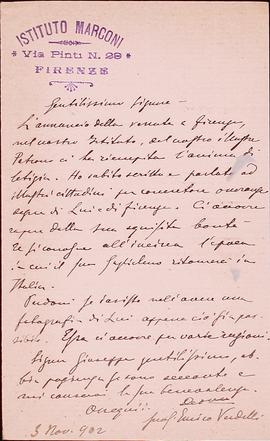 ISTITUTO MARCONI
* Via Pinti N. 29 *
FIRENZE
Gentilissimo Signore –
L'annuncio della venuta a Firenze,
nel nostro Istituto, del nostro illustre
Patrono ci ha riempito l'animo di
letizia. Ho subito scritto e parlato ad
illustri cittadini per concretare onoranze
degne di Lui e di Firenze. Ci
della sua squisita bontà
all'incirca l'epoca
in cui il Guglielmo ritornerà in
Italia.
Perdoni se insisto nell'avere una
fotografia di Lui appena ciò sia pos-
sibile. per varie ragioni.
Signor Giuseppe gentilissimo, ab-
bia pazienza se sono seccante e
mi conservi la sua benevolenza.
Ossequi
Devmo
prof. Enrico Verdelli
3 Nov. 902